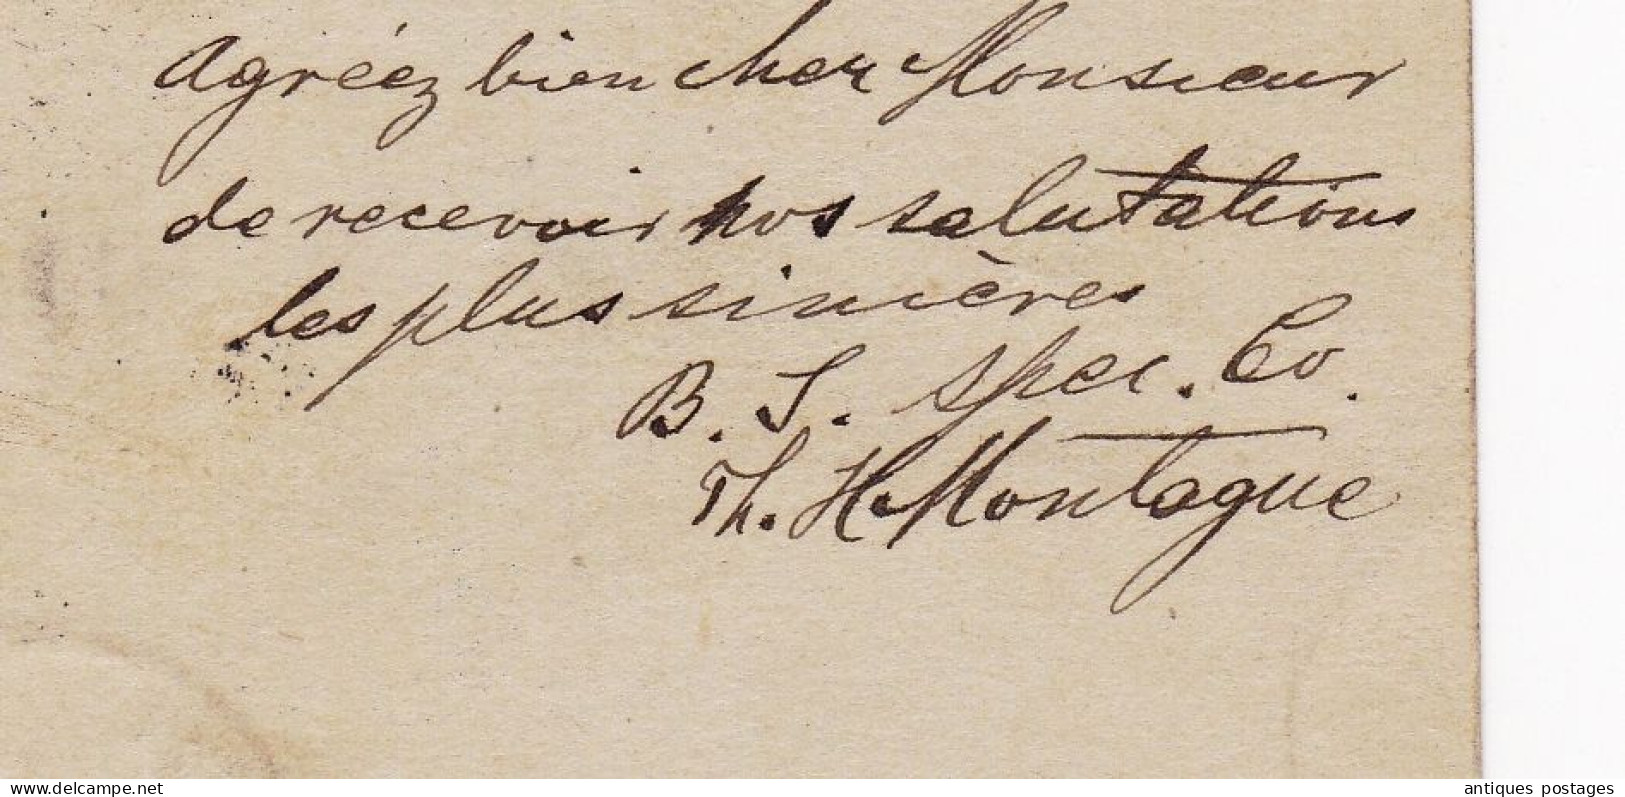 agréez bien cher Monsieur
de recevoir nos salutations
les plus sincères
B. S. Spec. Co.
Th. H. Montague
delcampe.net
antiques postages